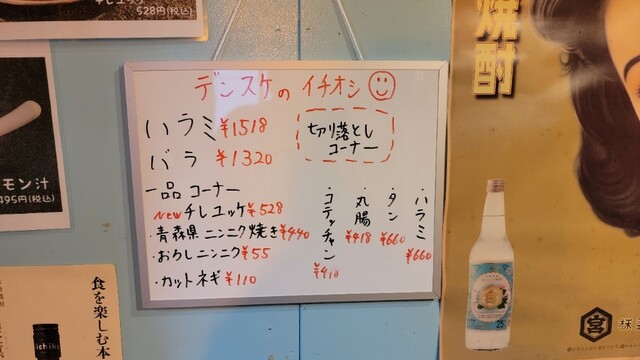 528円(税込)
モン汁
495円(税込)
食を楽しむ本
ichiko
デンスケの イチオシ
ハラミ ¥1518
バラ ¥1320
切り落とし
コーナー
一品 コーナー
New チレユッケ ¥528
・青森県 ニンニク焼き ¥440
・おろしニンニク ¥55
・カットネギ ¥110
・ハラミ ¥660
・タン ¥660
・丸腸 ¥418
・コテッチャン ¥418
焼酎
25
宮
株